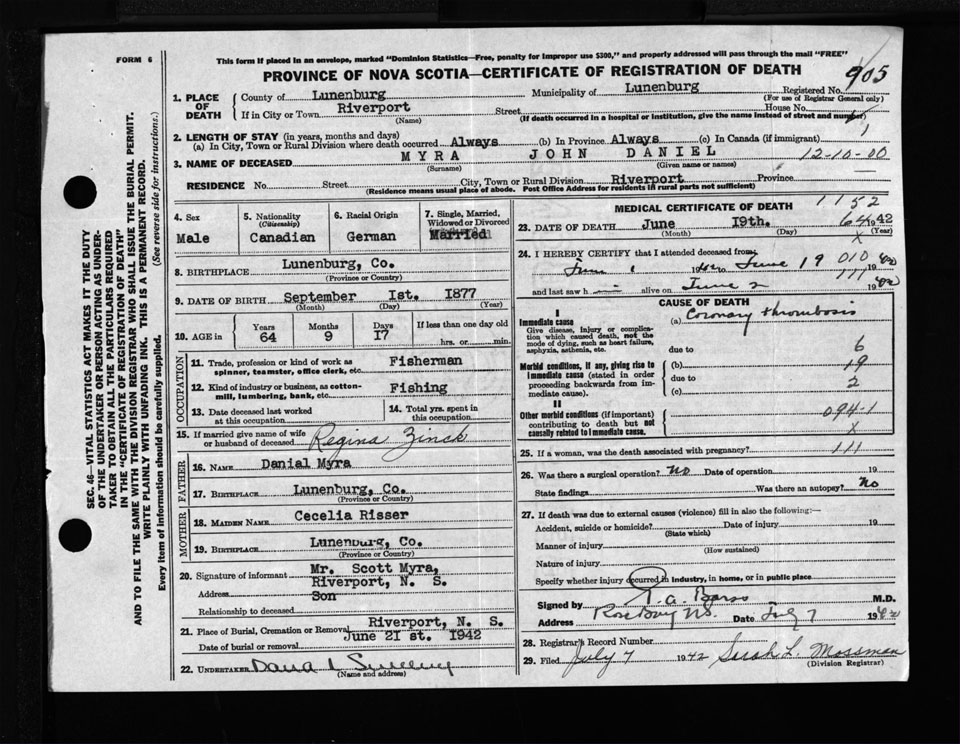 FORM 6
This form if placed in an envelope, marked "Dominion Statistics—Free, penalty for improper use $300," and properly addressed will pass through the mail "FREE"
PROVINCE OF NOVA SCOTIA—CERTIFICATE OF REGISTRATION OF DEATH
905
1. PLACE OF DEATH
County of Lunenburg Municipality of Lunenburg Registered No.
(For use of Registrar General only)
If in City or Town Riverport Street House No.
(Name) (If death occurred in a hospital or institution, give the name instead of street and number)
2. LENGTH OF STAY (in years, months and days)
(a) In City, Town or Rural Division where death occurred Always (b) In Province Always (c) In Canada (if immigrant)
3. NAME OF DECEASED MYRA JOHN DANIEL 12-10-00
(Surname) (Given name or names)
RESIDENCE No. Street City, Town or Rural Division Riverport Province
(Residence means usual place of abode. Post Office Address for residents if rural parts not sufficient)
4. Sex Male
5. Nationality (Citizenship) Canadian
6. Racial Origin German
7. Single, Married, Widowed or Divorced Married
8. BIRTHPLACE Lunenburg, Co.
(Province or Country)
9. DATE OF BIRTH September 1st. 1877
(Month) (Day) (Year)
10. AGE in Years 64 Months 9 Days 17 If less than one day old hrs. or min.
OCCUPATION
11. Trade, profession or kind of work as spinner, teamster, office clerk, etc. Fisherman
12. Kind of industry or business, as cotton-mill, lumbering, bank, etc. Fishing
13. Date deceased last worked at this occupation
14. Total yrs. spent in this occupation
15. If married give name of wife or husband of deceased Regina Zinck
FATHER
16. NAME Danial Myra
17. BIRTHPLACE Lunenburg, Co.
MOTHER
18. MAIDEN NAME Cecelia Risser
19. BIRTHPLACE Lunenburg, Co.
(Province or Country)
20. Signature of informant Mr. Scott Myra,
Address Riverport, N. S.
Relationship to deceased Son
21. Place of Burial, Cremation or Removal Riverport, N. S.
Date of burial or removal June 21st. 1942
22. UNDERTAKER
(Name and address)
MEDICAL CERTIFICATE OF DEATH
1152
23. DATE OF DEATH June 19th. 1942
(Month) (Day) (Year)
64
X
24. I HEREBY CERTIFY that I attended deceased from
June 1 1942 to June 19 1942
010
111
and last saw h alive on June 2 1942
CAUSE OF DEATH
I
Immediate cause
Give disease, injury or complication which caused death, not the mode of dying, such as heart failure, asphyxia, asthenia, etc.
(a) Coronary thrombosis
due to 6
Morbid conditions, if any, giving rise to immediate cause (stated in order proceeding backwards from immediate cause).
(b) 19
due to 2
(c)
II
Other morbid conditions (if important) contributing to death but not causally related to immediate cause.
094-1
X
25. If a woman, was the death associated with pregnancy? 111
26. Was there a surgical operation? No Date of operation 19
State findings Was there an autopsy? No
27. If death was due to external causes (violence) fill in also the following:—
Accident, suicide or homicide? Date of injury 19
(State which)
Manner of injury
(How sustained)
Nature of injury
Specify whether injury occurred in industry, in home, or in public place
Signed by M.D.
Address Rose Bay NS. Date July 7 1942
28. Registrar's Record Number
29. Filed July 7 1942 Sarah L. Mossman
(Division Registrar)
SEC. 46—VITAL STATISTICS ACT MAKES IT THE DUTY
OF THE UNDERTAKER OR PERSON ACTING AS UNDER-
TAKER TO OBTAIN ALL THE PARTICULARS REQUIRED
IN THE "CERTIFICATE OF REGISTRATION OF DEATH"
AND TO FILE THE SAME WITH THE DIVISION REGISTRAR WHO SHALL ISSUE THE BURIAL PERMIT.
WRITE PLAINLY WITH UNFADING INK. THIS IS A PERMANENT RECORD.
Every item of information should be carefully supplied. (See reverse side for instructions.)